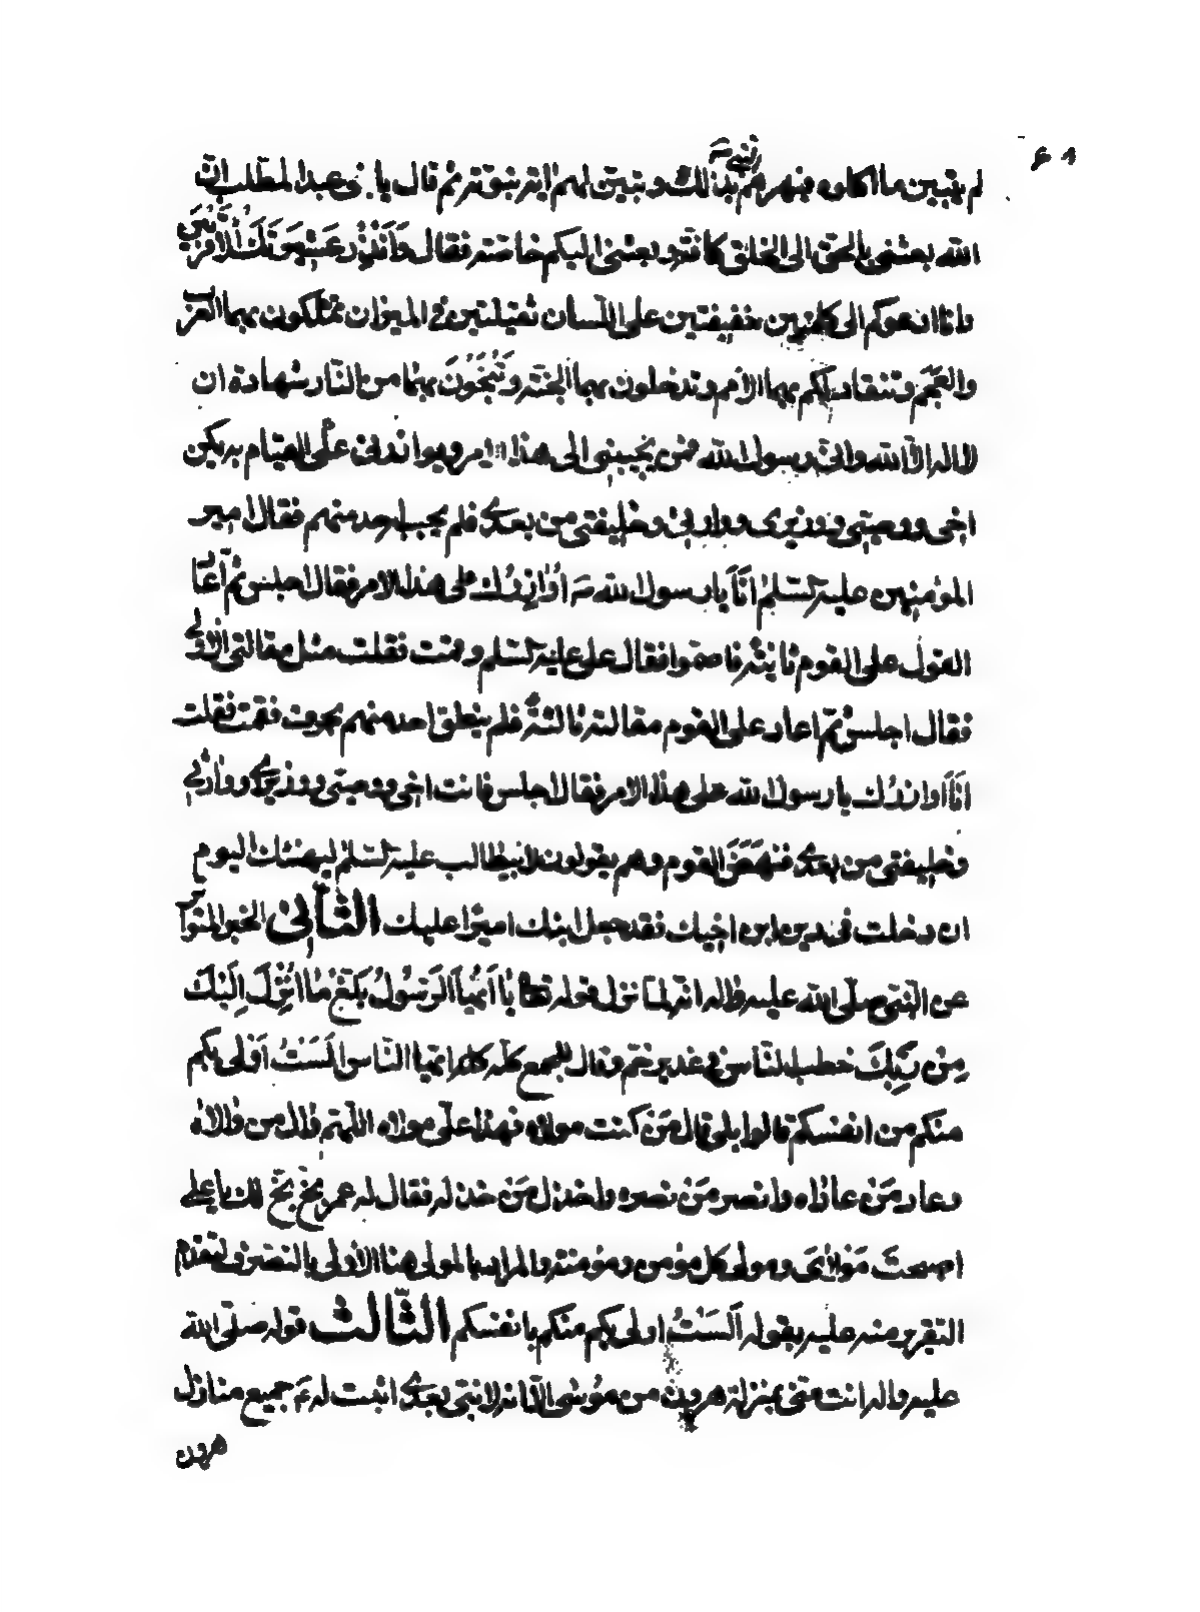 ٤٨
النبي صـ
لم يتبين ما اكلوه فبهرهم بذالك وتبين لهم اية نبوته ثم قال يا بنى عبد المطلب ان
الله بعثنى بالحق الى الخلق كافة وبعثنى اليكم خاصة فقال وَاَنْذِرْ عَشِيرَتَكَ الْاَقْرَبِينَ
وانا ادعوكم الى كلمتين خفيفتين على اللسان ثقيلتين فى الميزان تملكون بهما العرب
والعجم وتنقاد لكم بهما الامم وتدخلون بهما الجنة وتنجون بهما من النار شهادة ان
لا اله الا الله وانى رسول الله فمن يجيبنى الى هذا الامر ويوازرنى على القيام به يكن
اخى ووصيى ووزيرى ووارثى وخليفتى من بعدى فلم يجب احد منهم فقال امير
المؤمنين عليه السلم انا يا رسول الله صـ اوازرك على هذا الامر فقال اجلس ثم اعاد
القول على القوم ثانية فاصمتوا فقال على عليه السلم وقمت فقلت مثل مقالتى الاولى
فقال اجلس ثم اعاد على القوم مقالته ثالثة فلم ينطق احد منهم بحرف فقمت فقلت
انا اوازرك يا رسول الله على هذا الامر فقال اجلس فانت اخى ووصيى ووزيرى ووارثى
وخليفتى من بعدى فنهض القوم وهم يقولون لابيطالب عليه السلم ليهنئك اليوم
ان دخلت فى دين ابن اخيك فقد جعل ابنك اميرا عليك الثانى الخبر المتواتر
عن النبى صلى الله عليه واله انه لما نزل قوله تعالى يا اَيُّهَا الرَّسُولُ بَلِّغْ مَا اُنْزِلَ اِلَيْكَ
مِنْ رَبِّكَ خطب الناس فى غدير خم وقال للجمع كله ايها الناس الست اولى بكم
منكم من انفسكم قالوا بلى قال من كنت مولاه فهذا على مولاه اللهم وال من والاه
وعاد من عاداه وانصر من نصره واخذل من خذله فقال له عمر بخ بخ لك يا على
اصبحت مولاى ومولى كل مؤمن ومؤمنة والمراد بالمولى هنا الاولى بالتصرف لتقدم
التقرير منه عليه بقوله الست اولى بكم منكم بانفسكم الثالث قوله صلى الله
عليه واله انت منى بمنزلة هرون من موسى الا انه لا نبى بعدى اثبت له عـ جميع منازل
هرون